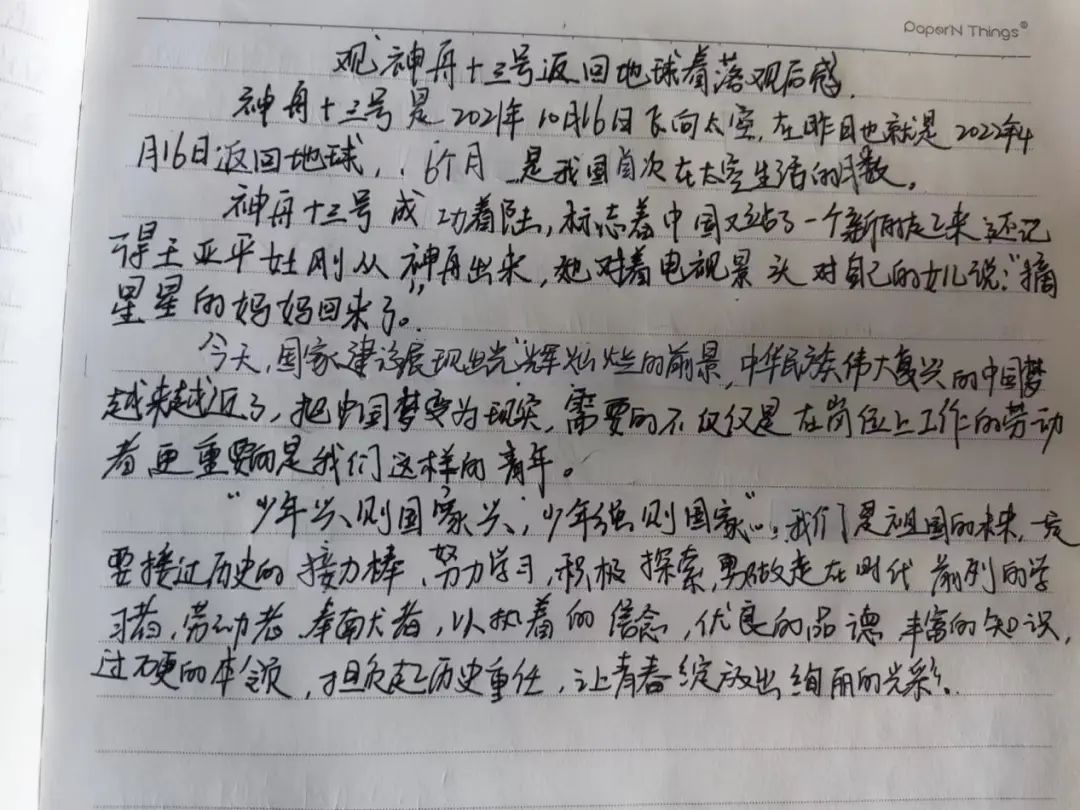 PaperN Things®
观神舟十三号返回地球着落观后感.
神舟十三号是2021年10月16日飞向太空,在昨日也就是2022年4
月16日返回地球,,6个月是我国首次在太空生活的月数。
神舟十三号成功着陆,标志着中国又站了一个新的起来还记
得王亚平女刚从神舟出来,她对着电视景头对自己的女儿说:"摘
星星的妈妈回来了。"
今天,国家建设展现出光辉灿烂的前景,中华民族伟大复兴的中国梦
越来越近了,把中国梦变为现实,需要的不仅仅是在岗位上工作的劳动
者更重要的是我们这样的青年。
"少年兴则国家兴;少年强则国家"。我们是祖国的未来,一定
要接过历史的接力棒,努力学习,积极探索,要做走在时代前列的学
习者,劳动者奉献者,以执着的信念,优良的品德丰富的知识,
过硬的本领,担负起历史重任,让青春绽放出绚丽的光彩.